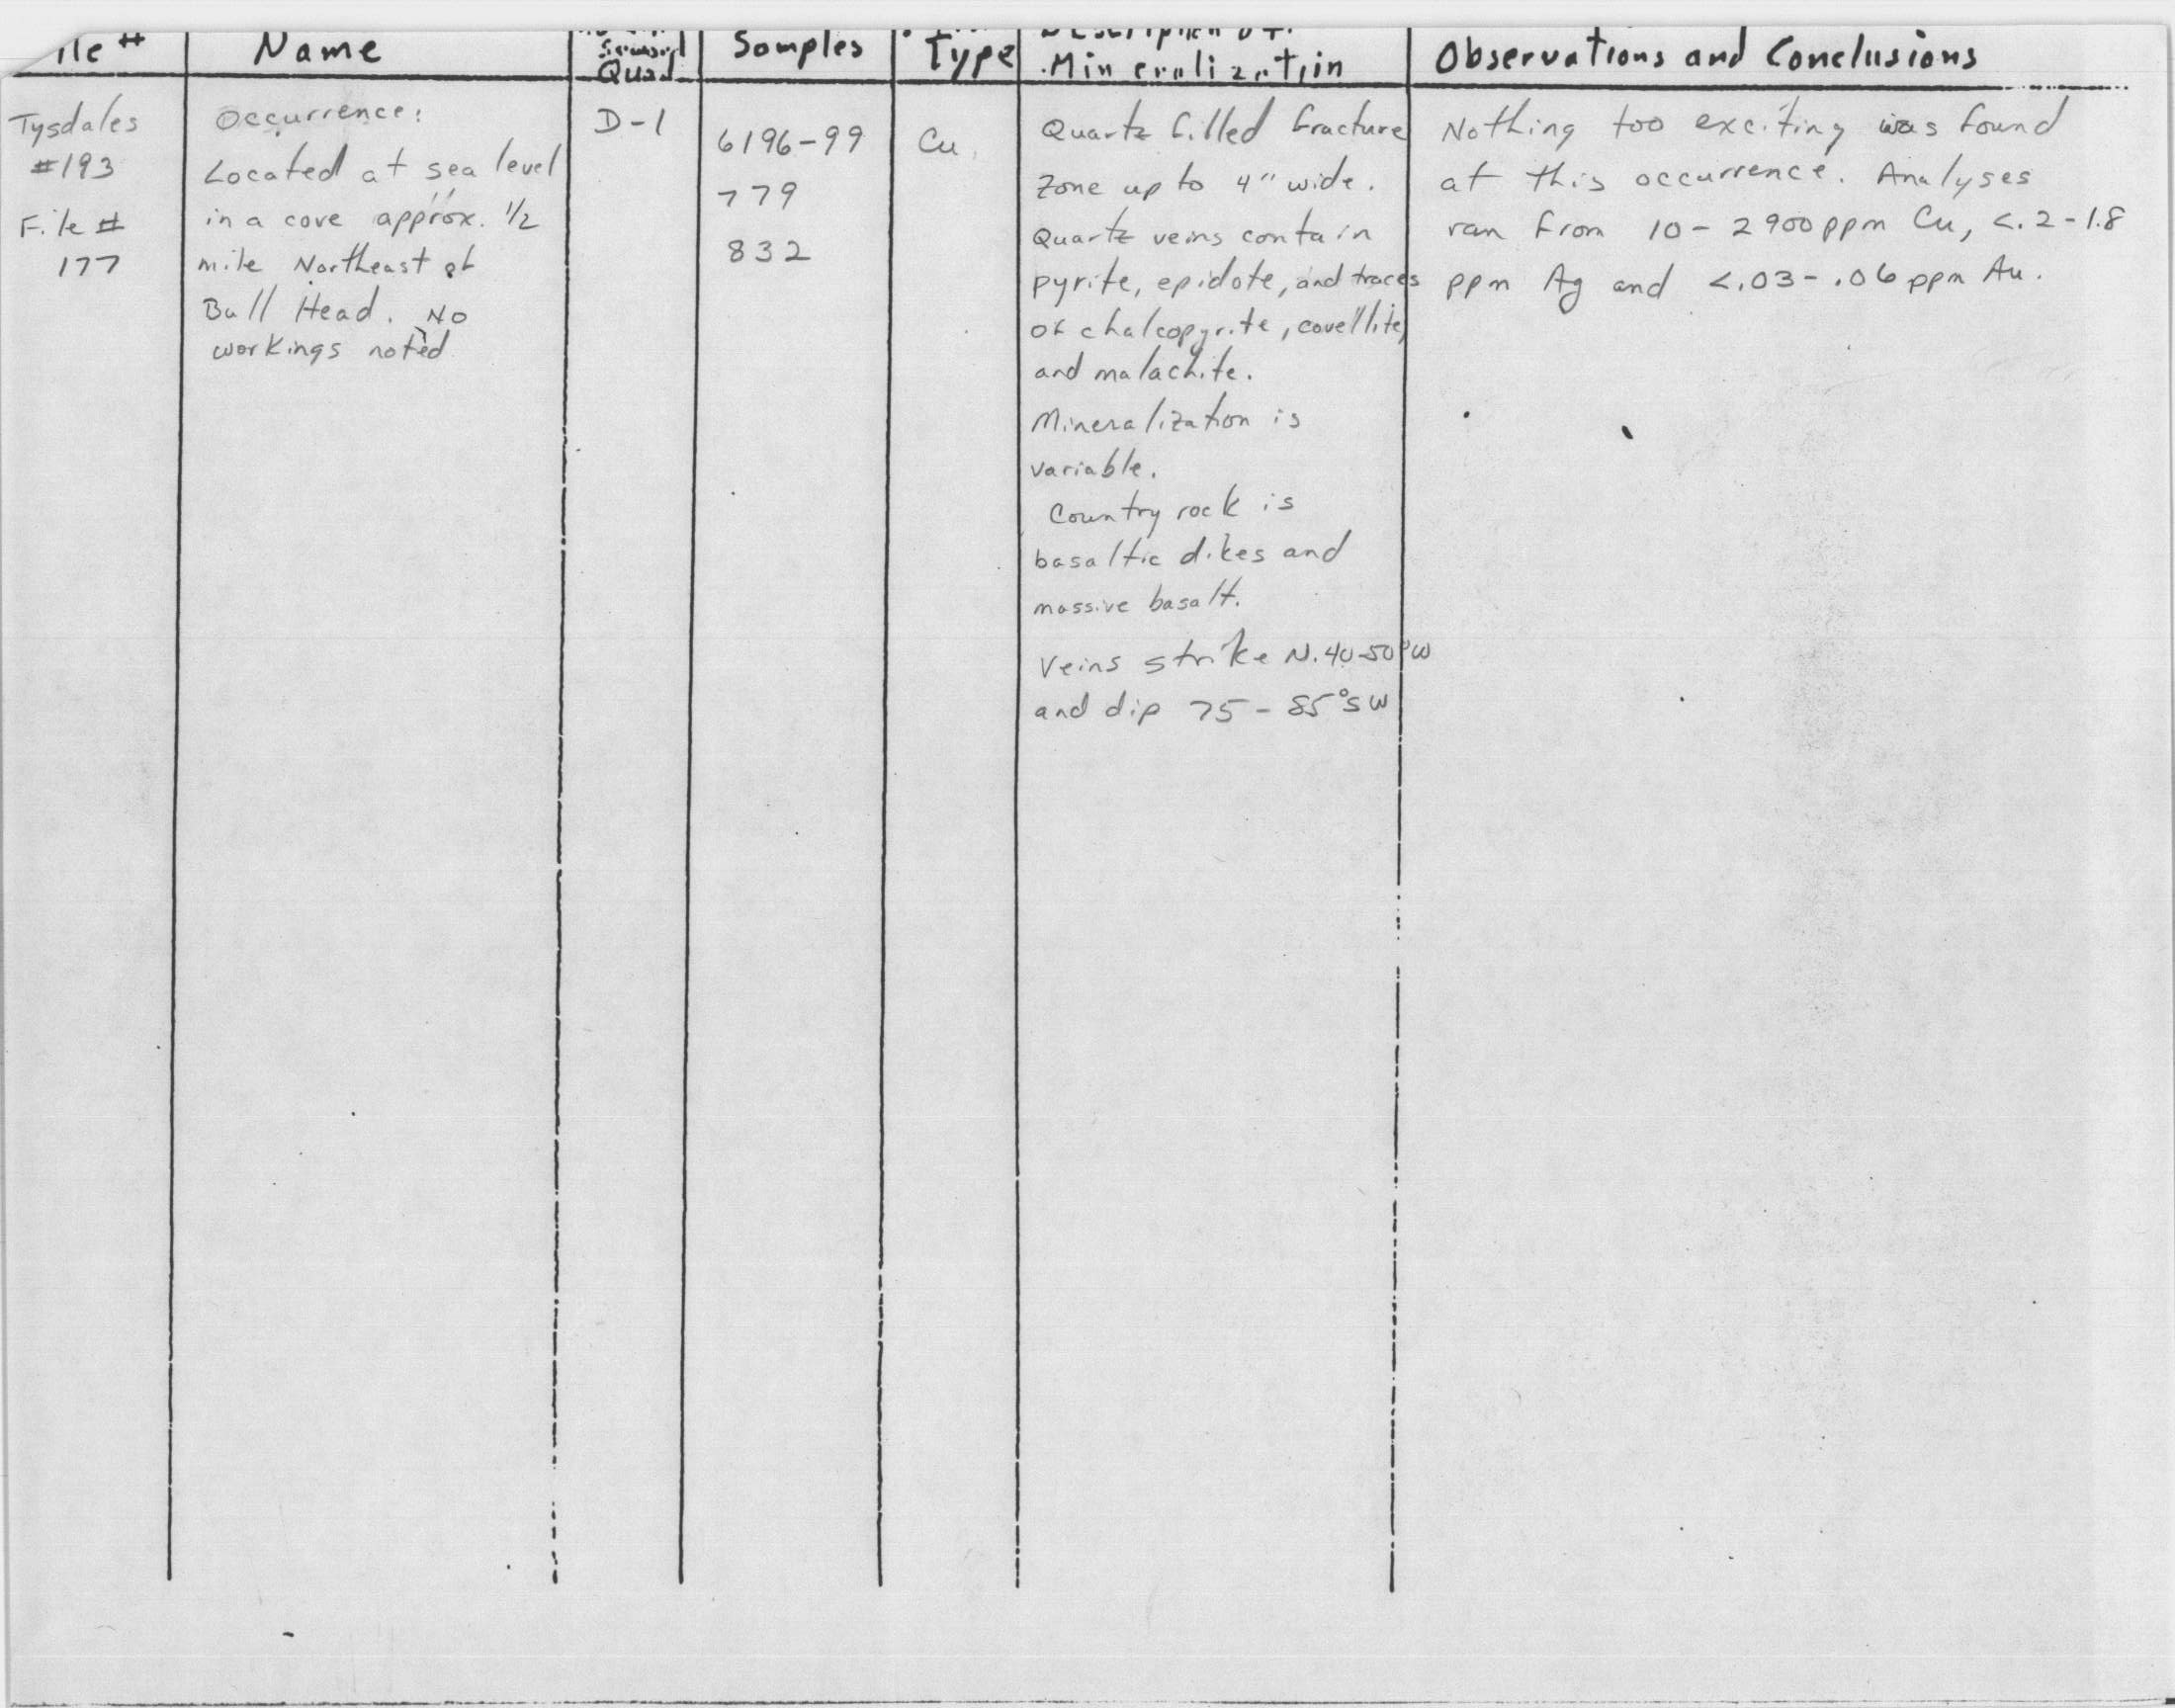 Name
Quad
Samples
Type
Mineralization
Observations and Conclusions
Tysdales
#193
File #
177
Occurrence:
Located at sea level
in a cove approx. 1/2
mile Northeast of
Bull Head. No
workings noted
D-1
6196-99
779
832
Cu
Quartz filled fracture
zone up to 4" wide.
Quartz veins contain
pyrite, epidote, and traces
of chalcopyrite, covellite,
and malachite.
Mineralization is
variable.
Country rock is
basaltic dikes and
massive basalt.
Veins strike N.40-50°W
and dip 75-85°SW
Nothing too exciting was found
at this occurrence. Analyses
ran from 10-2900ppm Cu, <.2-1.8
ppm Ag and <.03-.06 ppm Au.